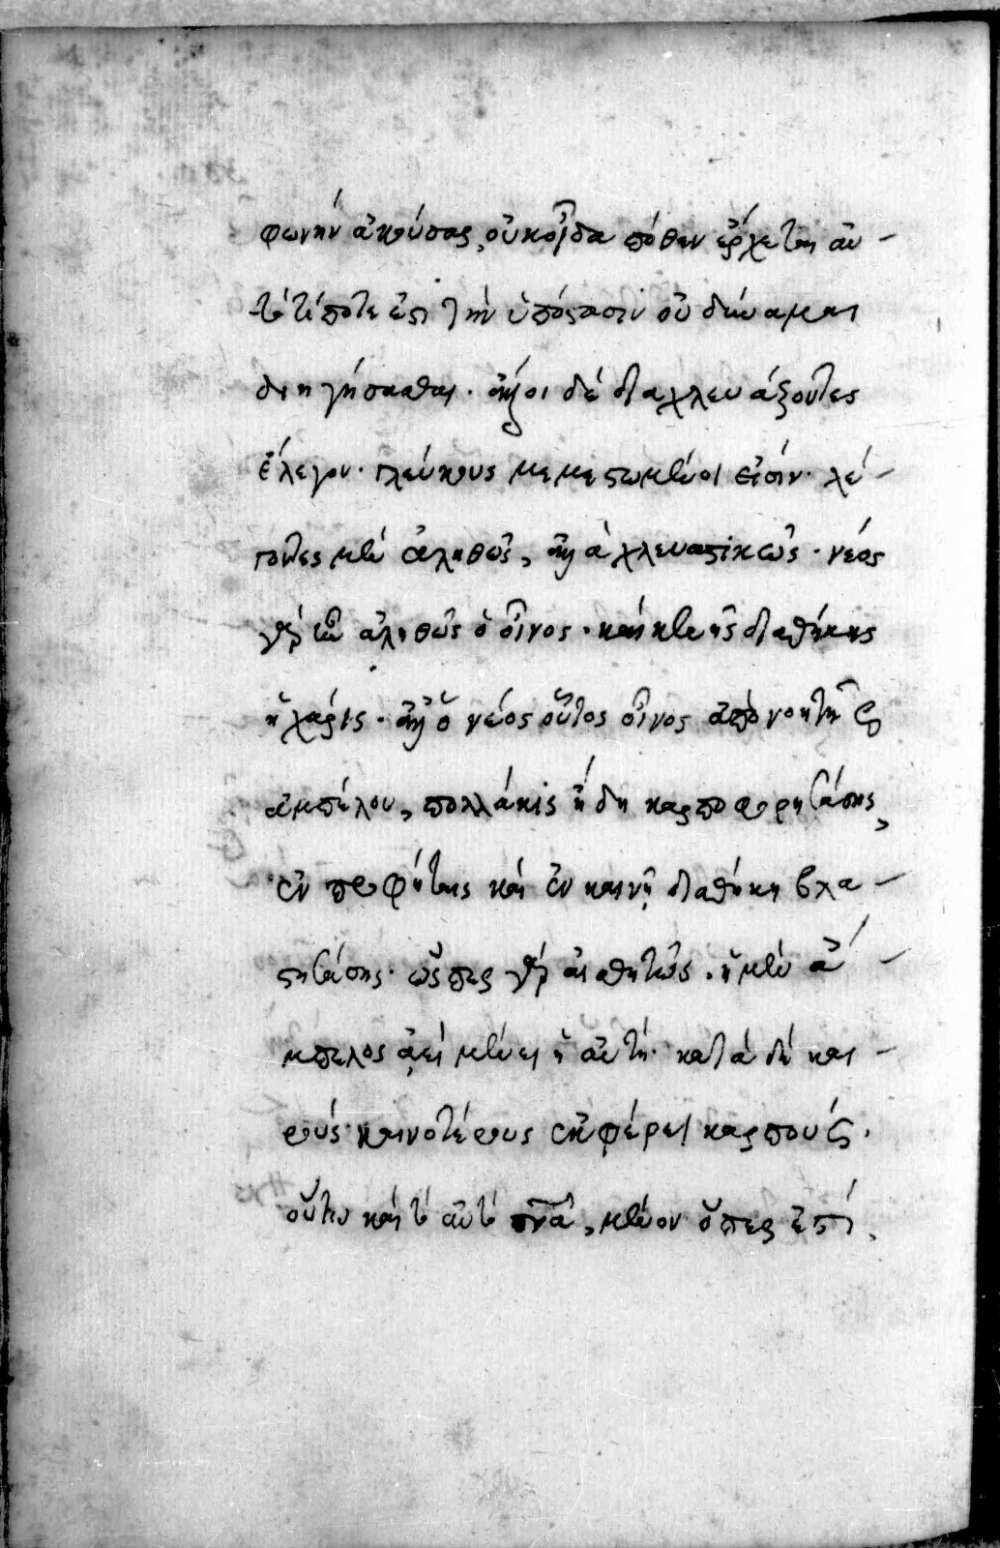 φωνὴν ἀκούσας, οὐκ οἶδα πόθεν ἔρχεται αὐ-
τὸ τί ποτε ἐστὶ τὴν ὑπόστασιν οὐ δύναμαι
διηγήσασθαι· ἄλλοι δὲ διαχλευάζοντες
ἔλεγον· γλεύκους μεμεστωμένοι εἰσίν· λέ-
γοντες μὲν ἀληθῶς, ἀλλὰ χλευαστικῶς· νέος
γὰρ ἦν ἀληθῶς ὁ οἶνος· καινῆς διαθήκης
ἡ χάρις· ἀλλ' ὁ νέος οὗτος οἶνος ἀπὸ νοητῆς
ἀμπέλου, πολλάκις ἤδη καρποφορησάσης,
ἐν προφήταις καὶ ἐν καινῇ διαθήκῃ βλα-
στησάσης· ὥσπερ γὰρ αἰσθητῶς· ἡ μὲν ἄ-
μπελος ἀεὶ μένει ἡ αὐτή· κατὰ δὲ και-
ροὺς καινοτέρους ἐκφέρει καρπούς·
οὕτω καὶ τὸ αὐτὸ πνα, μένον ὅπερ ἐστί,